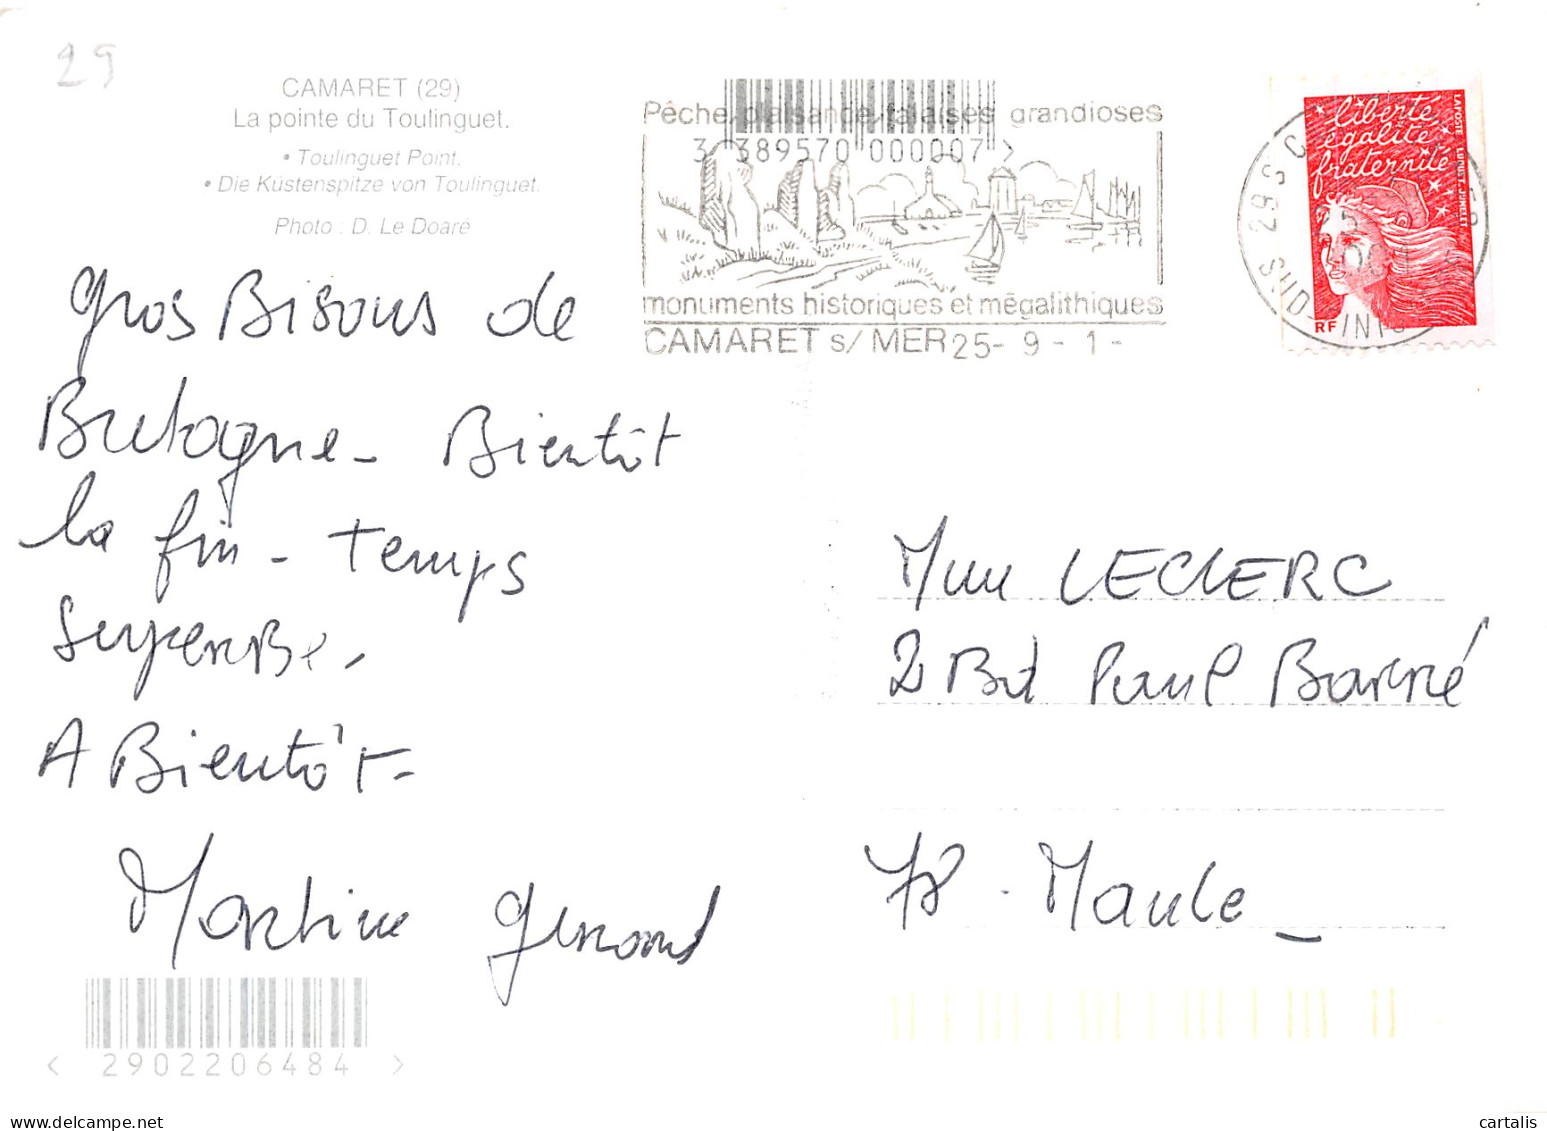 29
CAMARET (29)
La pointe du Toulinguet.
• Toulinguet Point.
• Die Küstenspitze von Toulinguet.
Photo : D. Le Doaré
Pêche plaisance falaises grandioses
3 389570 000007 >
monuments historiques et mégalithiques
CAMARET s/ MER 25- 9 - 1 -
liberté
égalité
fraternité
LA POSTE LUQUET-JUMELET
RF
29S
gros Bisous de
Bretagne - Bientôt
la fin - temps
superBe.
A Bientôt -
Martine
Mme LECLERC
2 Bd Paul Barré
78 - Maule
< 2902206484 >
www.delcampe.net
cartalis